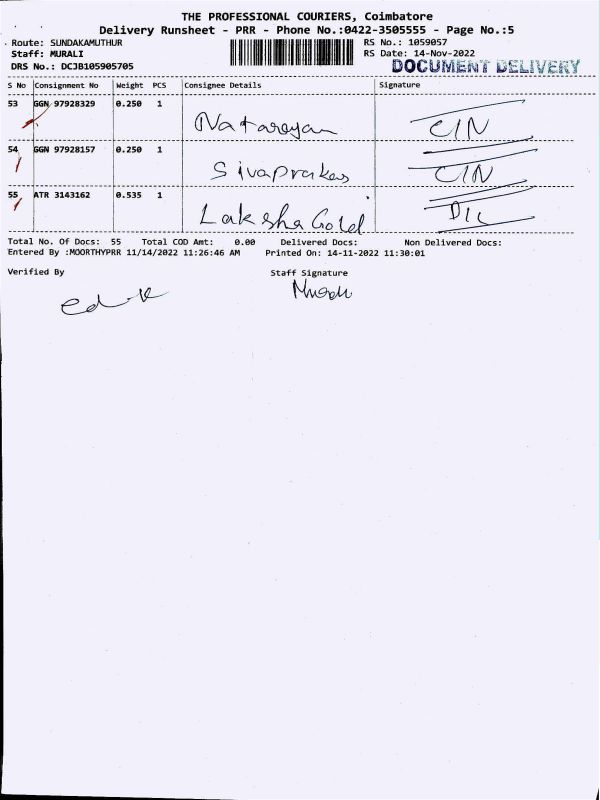 THE PROFESSIONAL COURIERS, Coimbatore
Delivery Runsheet - PRR - Phone No.:0422-3505555 - Page No.:5
Route: SUNDAKAMUTHUR RS No.: 1059057
Staff: MURALI RS Date: 14-Nov-2022
DRS No.: DCJB105905705 DOCUMENT DELIVERY
S No Consignment No Weight PCS Consignee Details Signature
53 GGN 97928329 0.250 1
Natarayan C/N
54 GGN 97928157 0.250 1
Sivaprakas C/N
55 ATR 3143162 0.535 1
Laksha Gold D/L
Total No. Of Docs: 55 Total COD Amt: 0.00 Delivered Docs: Non Delivered Docs:
Entered By :MOORTHYPRR 11/14/2022 11:26:46 AM Printed On: 14-11-2022 11:30:01
Verified By Staff Signature